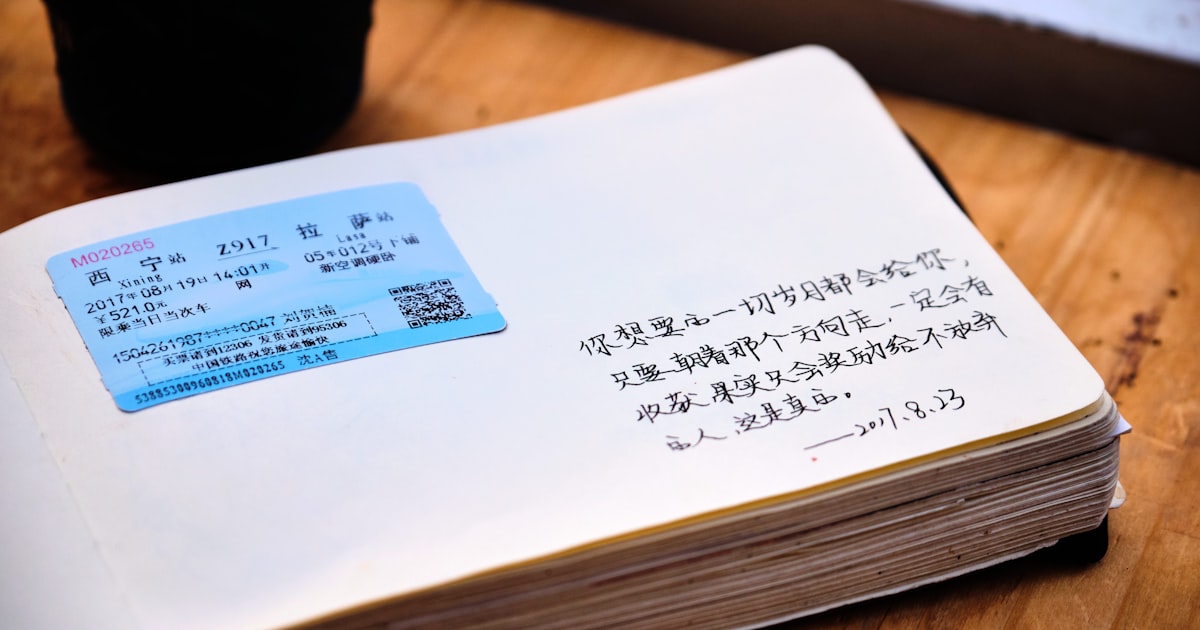 M020265
西宁站 Z917 拉萨站
Xining Lasa
2017年08月19日 14:01开 05车012号下铺
¥521.0元 网 新空调硬卧
限乘当日当次车
1504261987****0047 刘贺楠
买票请到12306 发货请到95306
中国铁路祝您旅途愉快
53885300960818M020265 沈A售
你想要的一切岁月都会给你，
只要朝着那个方向走，一定会有
收获，果实只会奖励给不放弃
的人，这是真的。
——2017.8.23